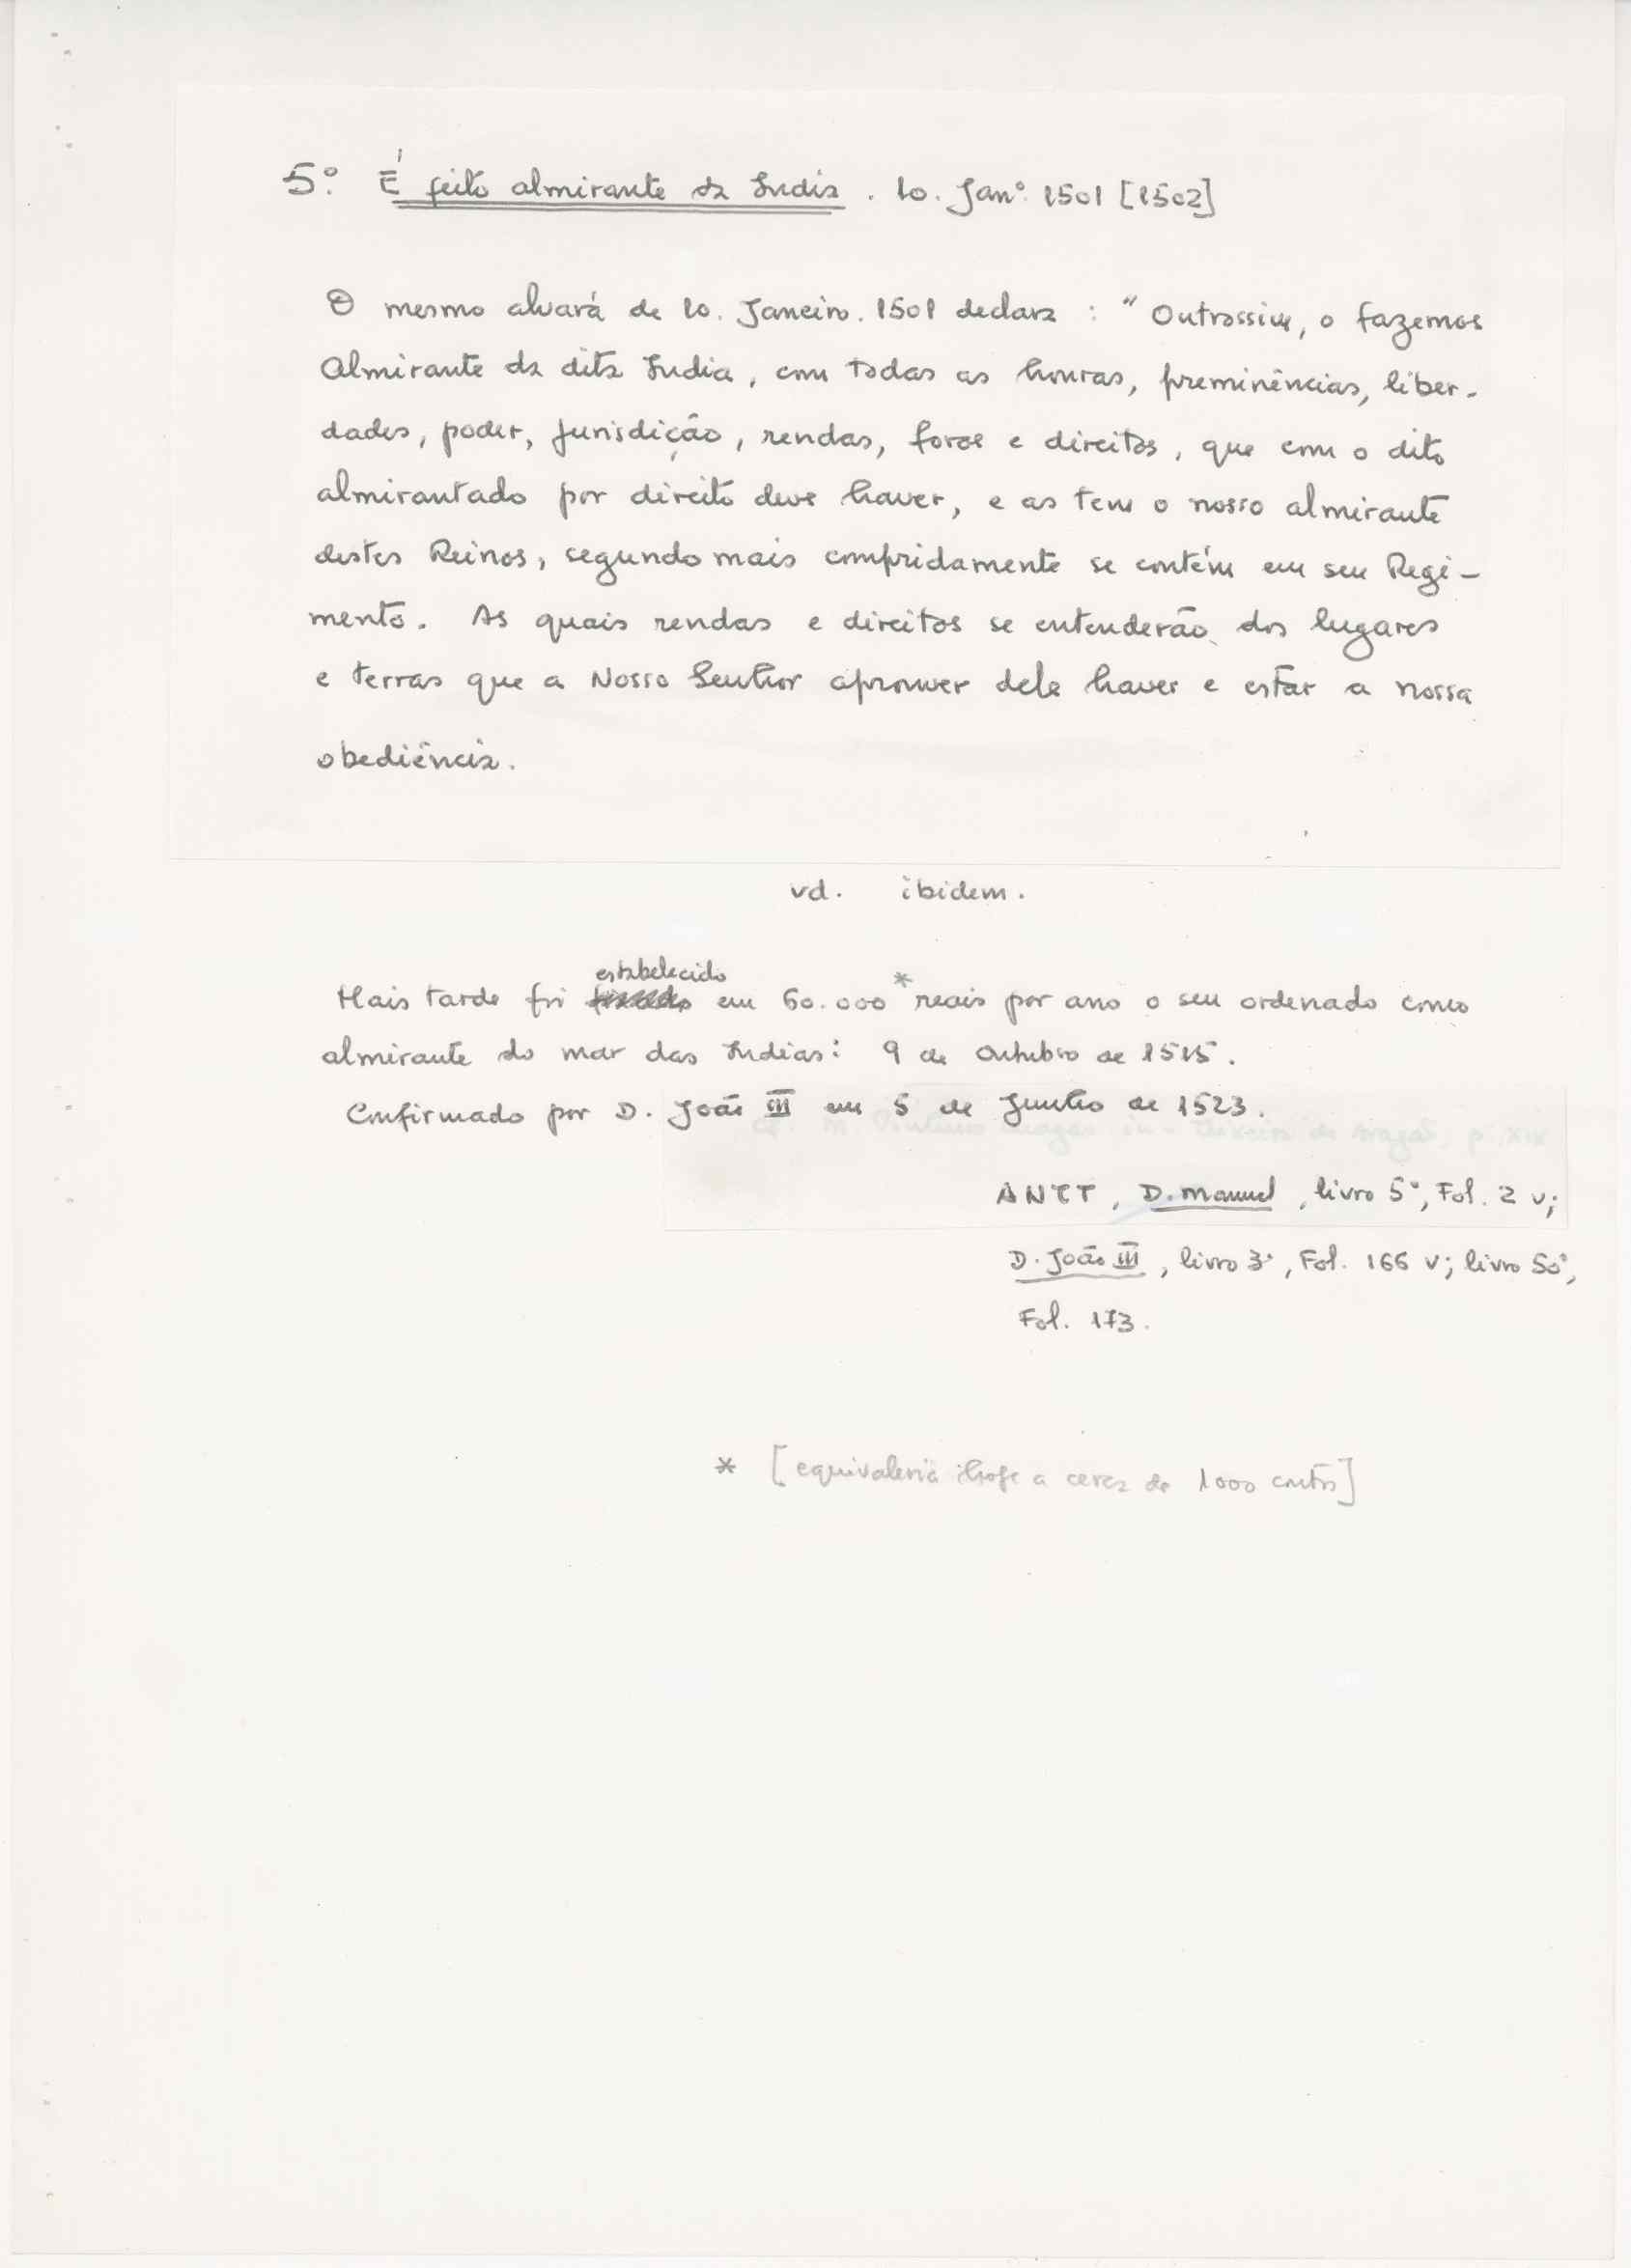 5º. É feito almirante da India. 10. Janº. 1501 [1502]
O mesmo alvará de 10. Janeiro. 1501 declara : "Outrossim, o fazemos
Almirante da dita India, com todas as honras, preminências, liber-
dades, poder, jurisdição, rendas, foros e direitos, que com o dito
almirantado por direito deve haver, e as tem o nosso almirante
destes Reinos, segundo mais compridamente se contém em seu Regi-
mento. As quais rendas e direitos se entenderão dos lugares
e terras que a Nosso Senhor aprouver dele haver e estar a nossa
obediência.
vd. ibidem.
estabelecido
Mais tarde foi em 60.000* reais por ano o seu ordenado como
almirante do mar das Indias: 9 de Outubro de 1515.
Confirmado por D. João III em 5 de Junho de 1523.
ANTT, D. Manuel, livro 5º, Fol. 2 v;
D. João III, livro 3º, Fol. 166 v; livro 50º,
Fol. 173.
* [equivaleria hoje a cerca de 1000 contos]